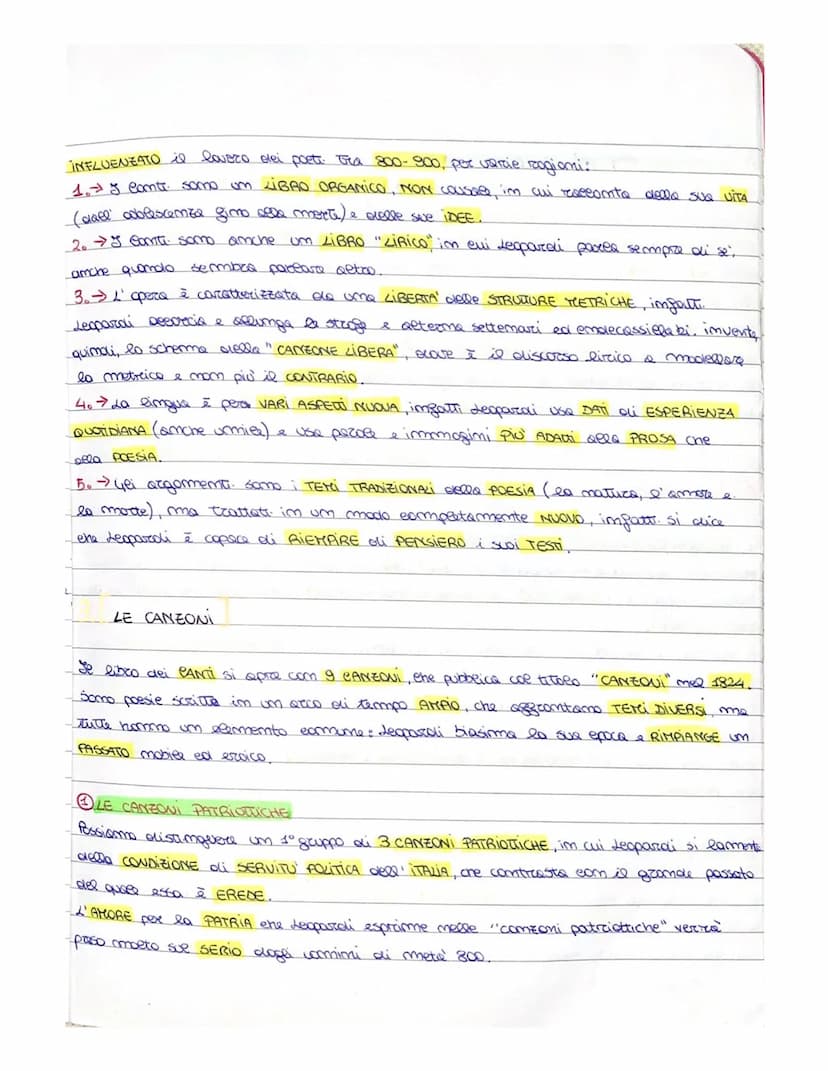 INFLUENZATO il lavoro dei poeti tra 800-900, per varie ragioni:
1.→ I Canti sono un LIBRO ORGANICO, NON causale, in cui racconta della sua VITA
(dall' adolescenza fino alla morte) e delle sue IDEE.
2. → I Canti sono anche un LIBRO "LIRICO", in cui Leopardi parla sempre di sé,
anche quando sembra parlare altro.
3.→ L' opera è caratterizzata da una LIBERTA' delle STRUTTURE METRICHE, infatti
Leopardi accorcia e allunga la strofe e alterna settenari ed endecassillabi. inventa,
quindi, lo schema della "CANZONE LIBERA", dove è il discorso lirico a modellare
la metrica e non più il CONTRARIO.
4.→ La lingua è per VARI ASPETTI NUOVA, infatti Leopardi usa DATI di ESPERIENZA
QUOTIDIANA (anche umile) e usa parole e immagini PIU' ADATTI alla PROSA che
alla POESIA.
5.→ Gli argomenti sono i TEMI TRADIZIONALI della POESIA (la natura, l'amore e
la morte), ma trattati in un modo completamente NUOVO, infatti si dice
che Leopardi è capace di RIEMPIRE di PENSIERO i suoi TESTI.
LE CANZONI
Il libro dei CANTI si apre con 9 CANZONI, che pubblica col titolo "CANZONI" nel 1824.
Sono poesie scritte in un arco di tempo AMPIO, che affrontano TEMI DIVERSI, ma
tutte hanno un elemento comune: Leopardi biasima la sua epoca e RIMPIANGE un
PASSATO nobile ed eroico.
① LE CANZONI PATRIOTTICHE
Possiamo distinguere un 1° gruppo di 3 CANZONI PATRIOTTICHE, in cui Leopardi si lamenta
della CONDIZIONE di SERVITU' POLITICA dell' ITALIA, che contrasta con il grande passato
del quale essa è EREDE.
L'AMORE per la PATRIA che Leopardi esprime nelle "canzoni patriottiche" verrà
preso molto sul SERIO dagli uomini di metà 800.